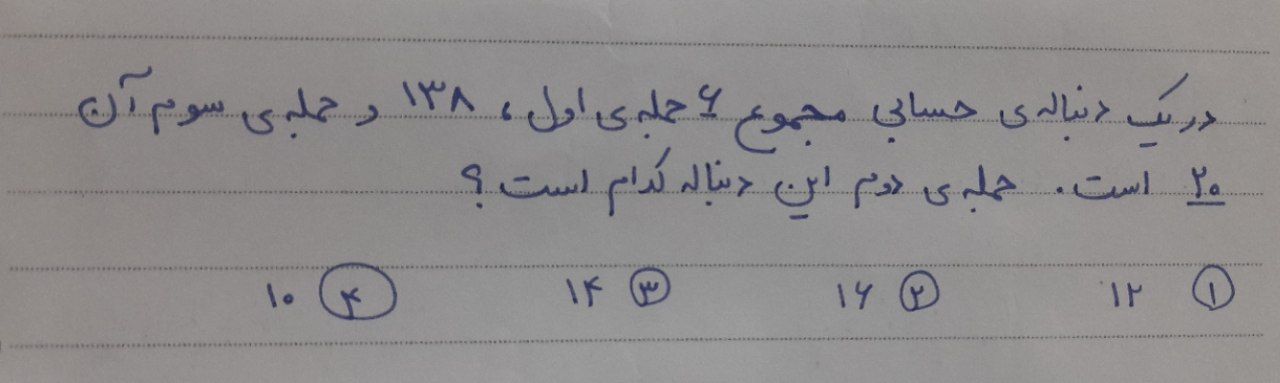 در یک دنباله‌ی حسابی مجموع ۶ جمله‌ی اول، ۱۳۸ و جمله‌ی سوم آن
۲۰ است. جمله‌ی دوم این دنباله کدام است؟
۱ ۱۲ ۲ ۱۶ ۳ ۱۴ ۴ ۱۰